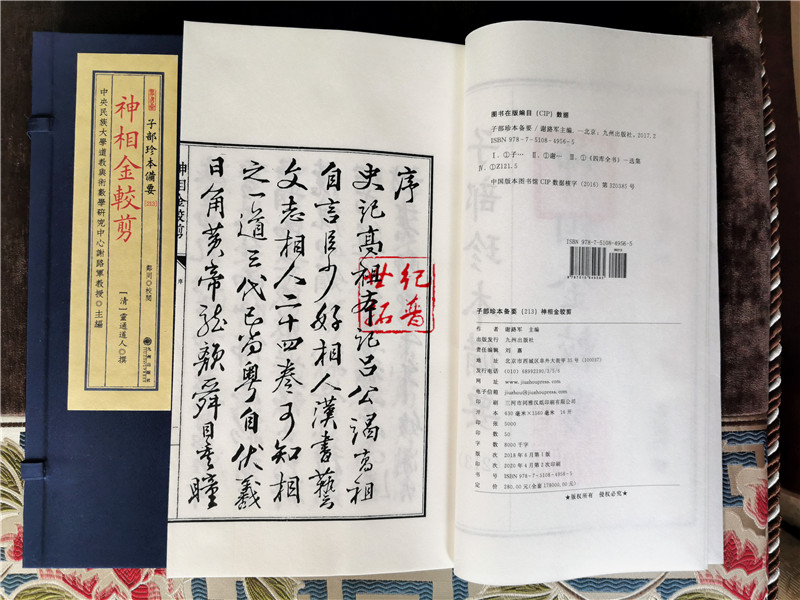 子部珍本備要 [213]
神相金較剪
中央民族大學道教與術數學研究中心謝路軍教授◎主編
鄭同◎校閱
[清]靈通道人◎撰
九州出版社
序
史記髙祖本記呂公謁髙祖
自言臣少好相人漢書藝
文志相人二十四卷可知相
之一道三代已尚粵自伏羲
日角黃帝龍顏舜目重瞳
神相金較剪
序
世纪
石普
图书在版编目(CIP)数据
子部珍本备要/谢路军主编. —北京:九州出版社, 2017.2
ISBN 978-7-5108-4956-5
Ⅰ. ①子… Ⅱ. ①谢… Ⅲ. ①《四库全书》—选集
Ⅳ. ①Z121.5
中国版本图书馆CIP数据核字(2016)第321385号
ISBN 978-7-5108-4956-5
子部珍本备要 (213) 神相金较剪
作 者 谢路军 主编
出版发行 九州出版社
责任编辑 刘嘉
地 址 北京市西城区阜外大街甲35号 (100037)
发行电话 (010) 68992190/2/3/5/6
网 址 www.jiuzhoupress.com
电子信箱 jiuzhou@jiuzhoupress.com
印 刷 三河市同雅仪旭印刷有限公司
开 本 630毫米×1160毫米 16开
印 张 5000
印 数 50
字 数 8000千字
版 次 2018年6月第1版
印 次 2020年4月第2次印刷
书 号 ISBN 978-7-5108-4956-5
定 价 280.00元(全套178000.00元)
★版权所有 侵权必究★